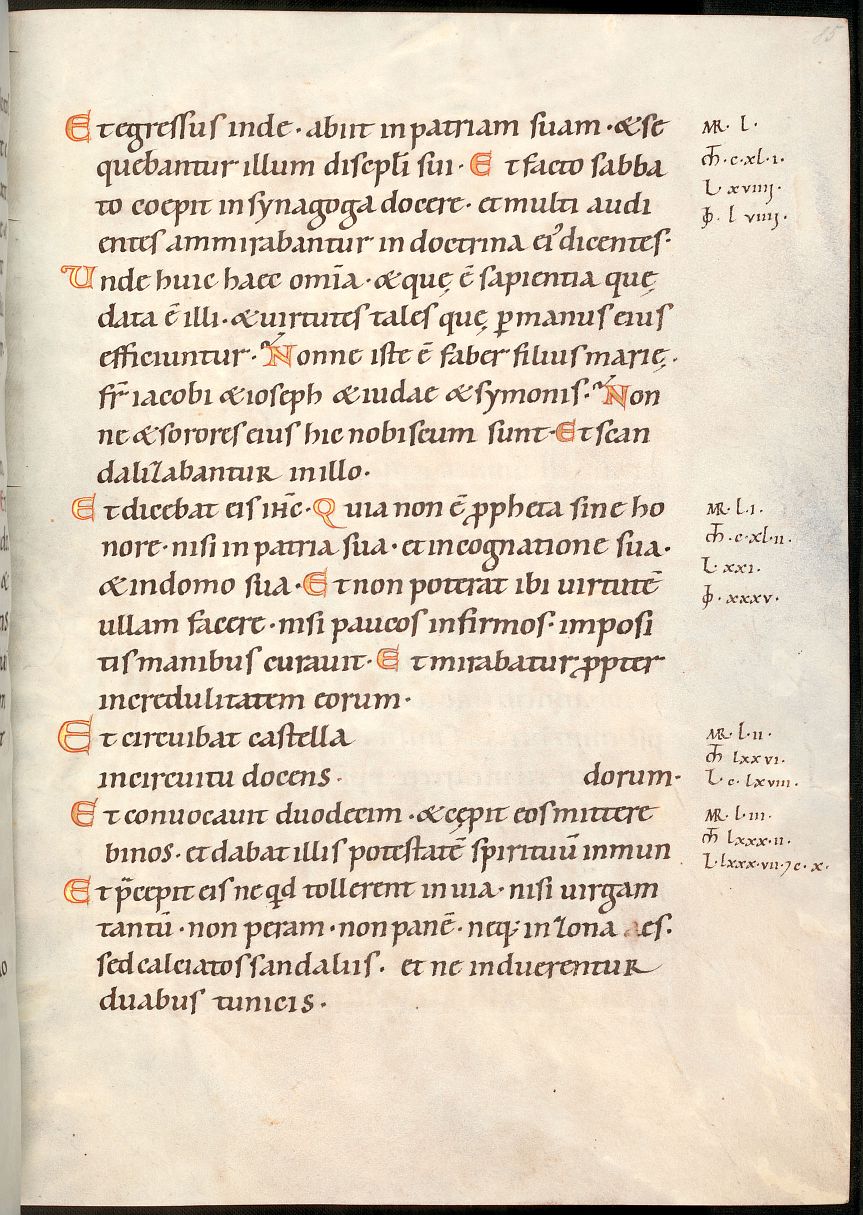 85
Et egressus inde · abiit in patriam suam · & se
quebantur illum discipli sui · Et facto sabba
to coepit in synagoga docere · et multi audi
entes ammirabantur in doctrina ei᾿ dicentes ·
Unde huic haec om̄ia · & quę ē sapientia quę
data ē illi · & uirtutes tales quę p̱ manus eius
efficiuntur · Nonne iste ē faber filius marię ·
fr̄ iacobi & ioseph & iudae & symonis · Non
ne & sorores eius hic nobiscum sunt · Et scan
dalizabantur in illo ·
Et dicebat eis ih̄c · Quia non ē ꝓpheta sine ho
nore · nisi in patria sua · et in cognatione sua ·
& in domo sua · Et non poterat ibi uirtutē
ullam facere · nisi paucos infirmos · imposi
tis manibus curauit · Et mirabatur ꝓpter
incredulitatem eorum ·
Et circuibat castella
in circuitu docens · dorum ·
Et conuocauit duodecim · & cępit eos mittere
binos · et dabat illis potestatē spirituū inmun
Et p̄cepit eis ne qd tollerent in uia · nisi uirgam
tantū · non peram · non panē · neq; in zona aes ·
sed calciatos sandaliis · et ne induerentur
duabus tunicis ·
MR · L ·
M̄ · c · xl · i ·
L xviiii ·
L viiii ·
MR · L · i ·
M̄ · c · xl · ii ·
L xxi ·
xxxv ·
MR · L · ii ·
M̄ lxxvi ·
L · c · lxviii ·
MR · L · iii ·
M̄ lxxx · ii ·
L · lxxx · vii · ⁊ c · x ·